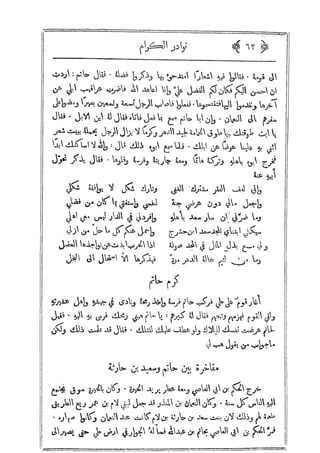 ﴿ ٦٢ ﴾ نوادر الكرام
الى قومهِ ۰ فقالوا فيهِ اشعارًا امتدحوهُ بها وذكروا فضلهُ ۰ فقال حاتم : اردت
ان احسن اليكم فكان لكم الفضل عليَّ وانا اعاهد الله ان اضرب عراقيب ابلي عن
آخرها او تقوموا اليها فتقتسموها ۰ ففعلوا فاصاب الرجل تسعة وتسعين بعيرًا ومضوا على
سفرهم الى النعمان ۰ وان ابا حاتم سمع بما فعل فاتاه فقال لهُ اين الابل ۰ فقال
يا ابت طوقتك بها طوق الحمامة مجد الدهر وكرمًا لا يزال الرجل يحمل بيت شعر
اثني بهِ علينا عوضًا عن ابلك ۰ فلما سمع ابوه ذلك قال : والله لا اساكنك ابدًا
فخرج ابوه باهلهِ وترك حاتمًا ومعهُ جاريتهُ وفرسهُ وفلوها ۰ فقال يذكر تحوّل
ابيهِ عنهُ
واني لعف الفقر مشترك الغنى وتارك شكل لا يوافقهُ شكلي
واجعل مالي دون عرضي جنة لنفسي واستغني بما كان من فضلي
وما ضرَّني ان سار سعد باهلهِ وافردني في الدار ليس معي اهلي
سيكفي ابتناي المجد سعد ابن حشرج واحمل عنكم كل ما حل من ازلي
ولي مع بذل المال في المجد صولة اذا الحرب ابدت عن نواجذها العضل
وما من لئيم عالهُ الدهر مرة فيذكرها الَّا استمال الى البخل
كرم حاتم
أغار قوم على طي فركب حاتم فرسهُ واخذ رمحهُ ونادى في جيشهِ واهل عشيرتهِ
ولقي القوم فهزمهم وتبعهم فقال لهُ كبيرهم : يا حاتم هب لي رمحك فرمى بهِ اليهِ ۰ فقيل
لحاتم عرضت نفسك للهلاك ولو عطف عليك لقتلك ۰ فقال قد علمت ذلك ولكن
ما جواب من يقول هب لي
مفاخرة بين حاتم وسعيد بن حارثة
خرج الحكم بن ابي العاصي ومعهُ عطر يريد الحيرة ۰ وكان بالحيرة سوق يجتمع
اليهِ الناس كل سنة ۰ وكان النعمان بن المنذر قد جعل لبني لام بن عمرو ربع الطريق
طعمة لهم وذلك لان بنت سعد بن حارثة بن لام كانت عند النعمان وكانوا صهاره ۰
فمرَّ الحكم بن ابي العاصي بحاتم بن عبد الله فسألهُ الجوار في ارض طي حتى يصير الى